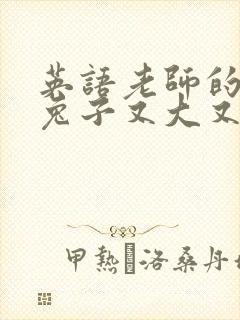 英語老師的
兔子又大又
甲熱洛桑丹